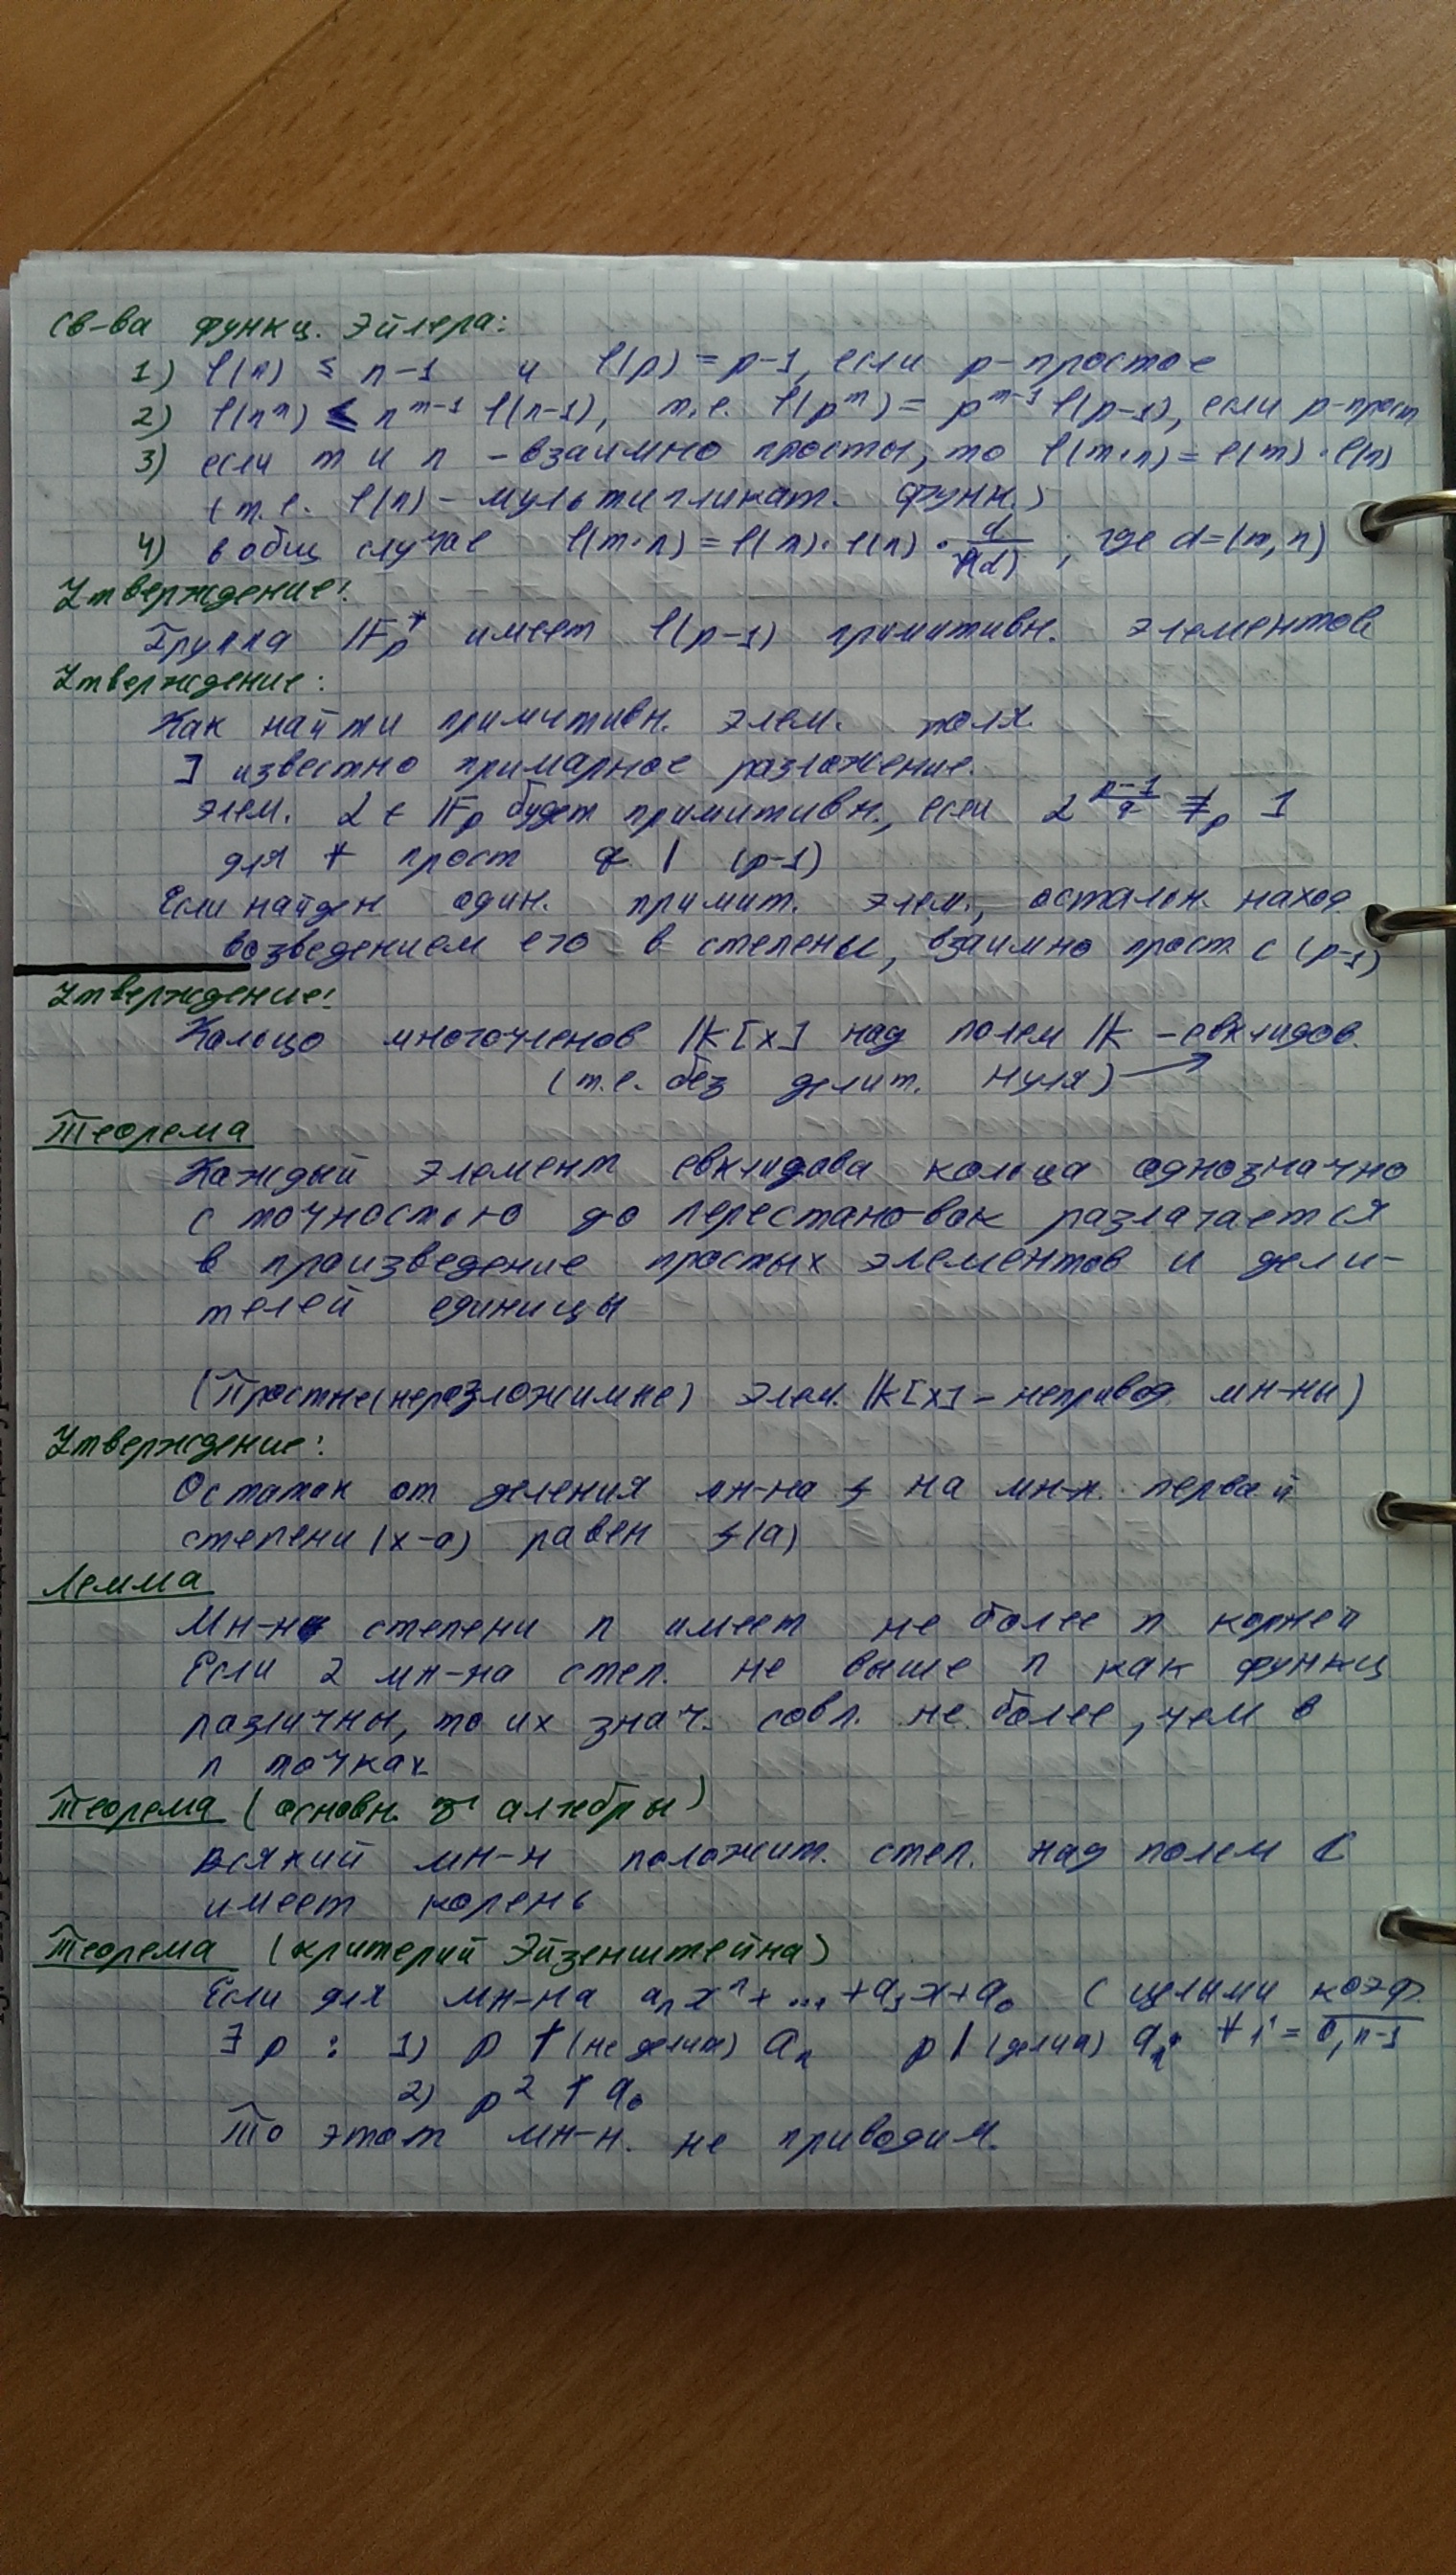 Св-ва функц. Эйлера:
1) φ(n) ≤ n-1 и φ(p) = p-1, если p-простое
2) φ(nᵐ) ≤ nᵐ⁻¹ φ(n-1), т.е. φ(pᵐ) = pᵐ⁻¹ φ(p-1), если p-прост
3) если m и n - взаимно просты, то φ(m·n) = φ(m)·φ(n)
(т.е. φ(n) - мультипликат. функ.)
4) в общ случае φ(m·n) = φ(m)·φ(n)·d/φ(d); где d=(m,n)
Утверждение:
Группа 𝔽p* имеет φ(p-1) примитивн. элементов
Утверждение:
Как найти примитивн. элем. поля.
] известно примарное разложение.
элем. α ∈ 𝔽p будет примитивн., если α^((p-1)/q) ≢p 1
для ∀ прост q | (p-1)
Если найден один. примит. элем., осталон. наход.
возведением его в степены, взаимно прост. с (p-1)
Утверждение:
Кольцо многочленов 𝕂[x] над полем 𝕂 - евклидов.
(т.е. без делит. нуля) →
Теорема
Каждый элемент евклидова кольца однозначно
с точностью до перестановок разлагается
в произведение простых элементов и дели-
телей единицы
(Простые(неразложимые) элем. 𝕂[x] - непривод. мн-ны)
Утверждение:
Остаток от деления мн-на f на мн-н. первой
степени (x-a) равен f(a)
Лемма
Мн-н степени n имеет не более n корней
Если 2 мн-на степ. не выше n как функц
различны, то их знач. совп. не более, чем в
n точках
Теорема (основн. алгебры)
Всякий мн-н положит. степ. над полем ℂ
имеет корень
Теорема (критерий Эйзенштейна)
Если для мн-на aₙxⁿ + ... + a₁x + a₀ с целыми коэф.
∃ p : 1) p ∤ (не делит) aₙ p | (делит) aᵢ ∀ i = 0,n-1
2) p² ∤ a₀
То этот мн-н. не приводим.